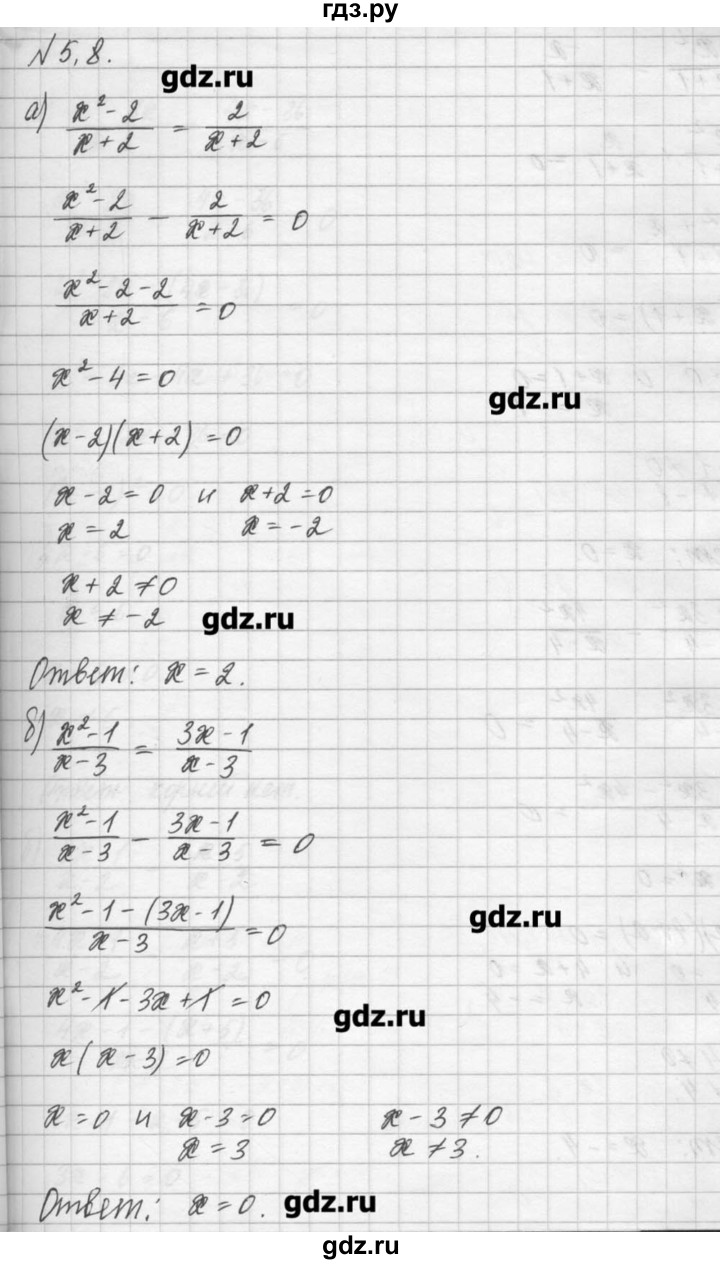 гдз.ру
№ 5,8.
gdz.ru
а) (x² - 2)/(x + 2) = 2/(x + 2)
(x² - 2)/(x + 2) - 2/(x + 2) = 0
(x² - 2 - 2)/(x + 2) = 0
x² - 4 = 0
gdz.ru
(x - 2)(x + 2) = 0
x - 2 = 0 и x + 2 = 0
x = 2 x = -2
x + 2 ≠ 0
x ≠ -2
gdz.ru
Ответ: x = 2.
б) (x² - 1)/(x - 3) = (3x - 1)/(x - 3)
(x² - 1)/(x - 3) - (3x - 1)/(x - 3) = 0
(x² - 1 - (3x - 1))/(x - 3) = 0
gdz.ru
x² - 1 - 3x + 1 = 0
gdz.ru
x(x - 3) = 0
x = 0 и x - 3 = 0 x - 3 ≠ 0
x = 3 x ≠ 3.
Ответ: x = 0.
gdz.ru
gdz.ru